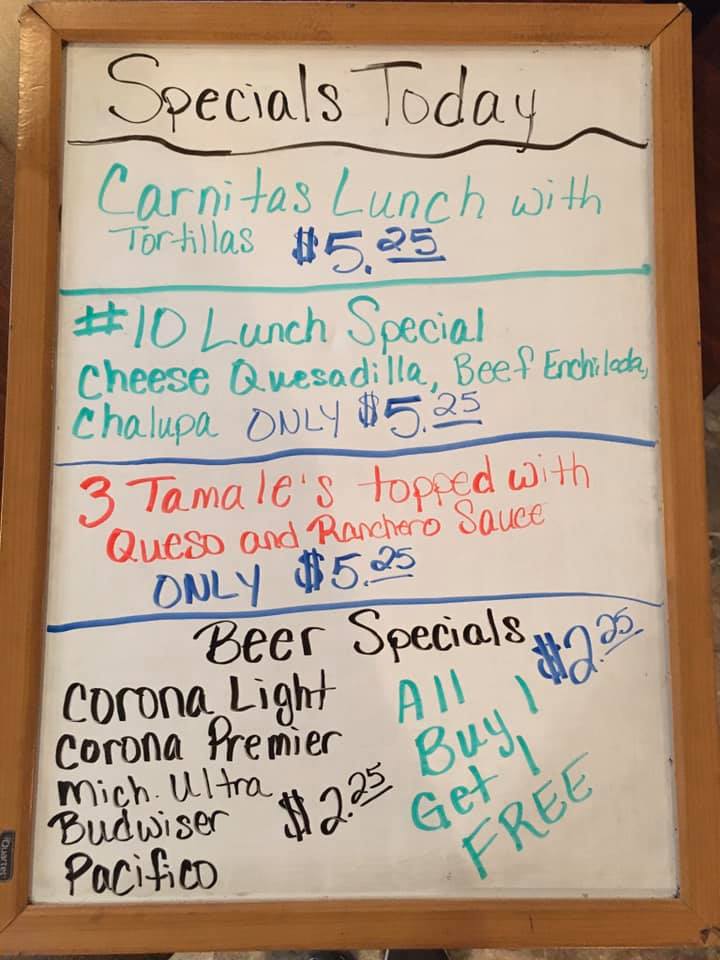 Specials Today
Carnitas Lunch with
Tortillas $5.25
#10 Lunch Special
Cheese Quesadilla, Beef Enchilada,
Chalupa ONLY $5.25
3 Tamale's topped with
Queso and Ranchero Sauce
ONLY $5.25
Beer Specials $2.25
Corona Light
Corona Premier
Mich. Ultra
Budwiser $2.25
Pacifico
All
Buy 1
Get 1
FREE
Quartet